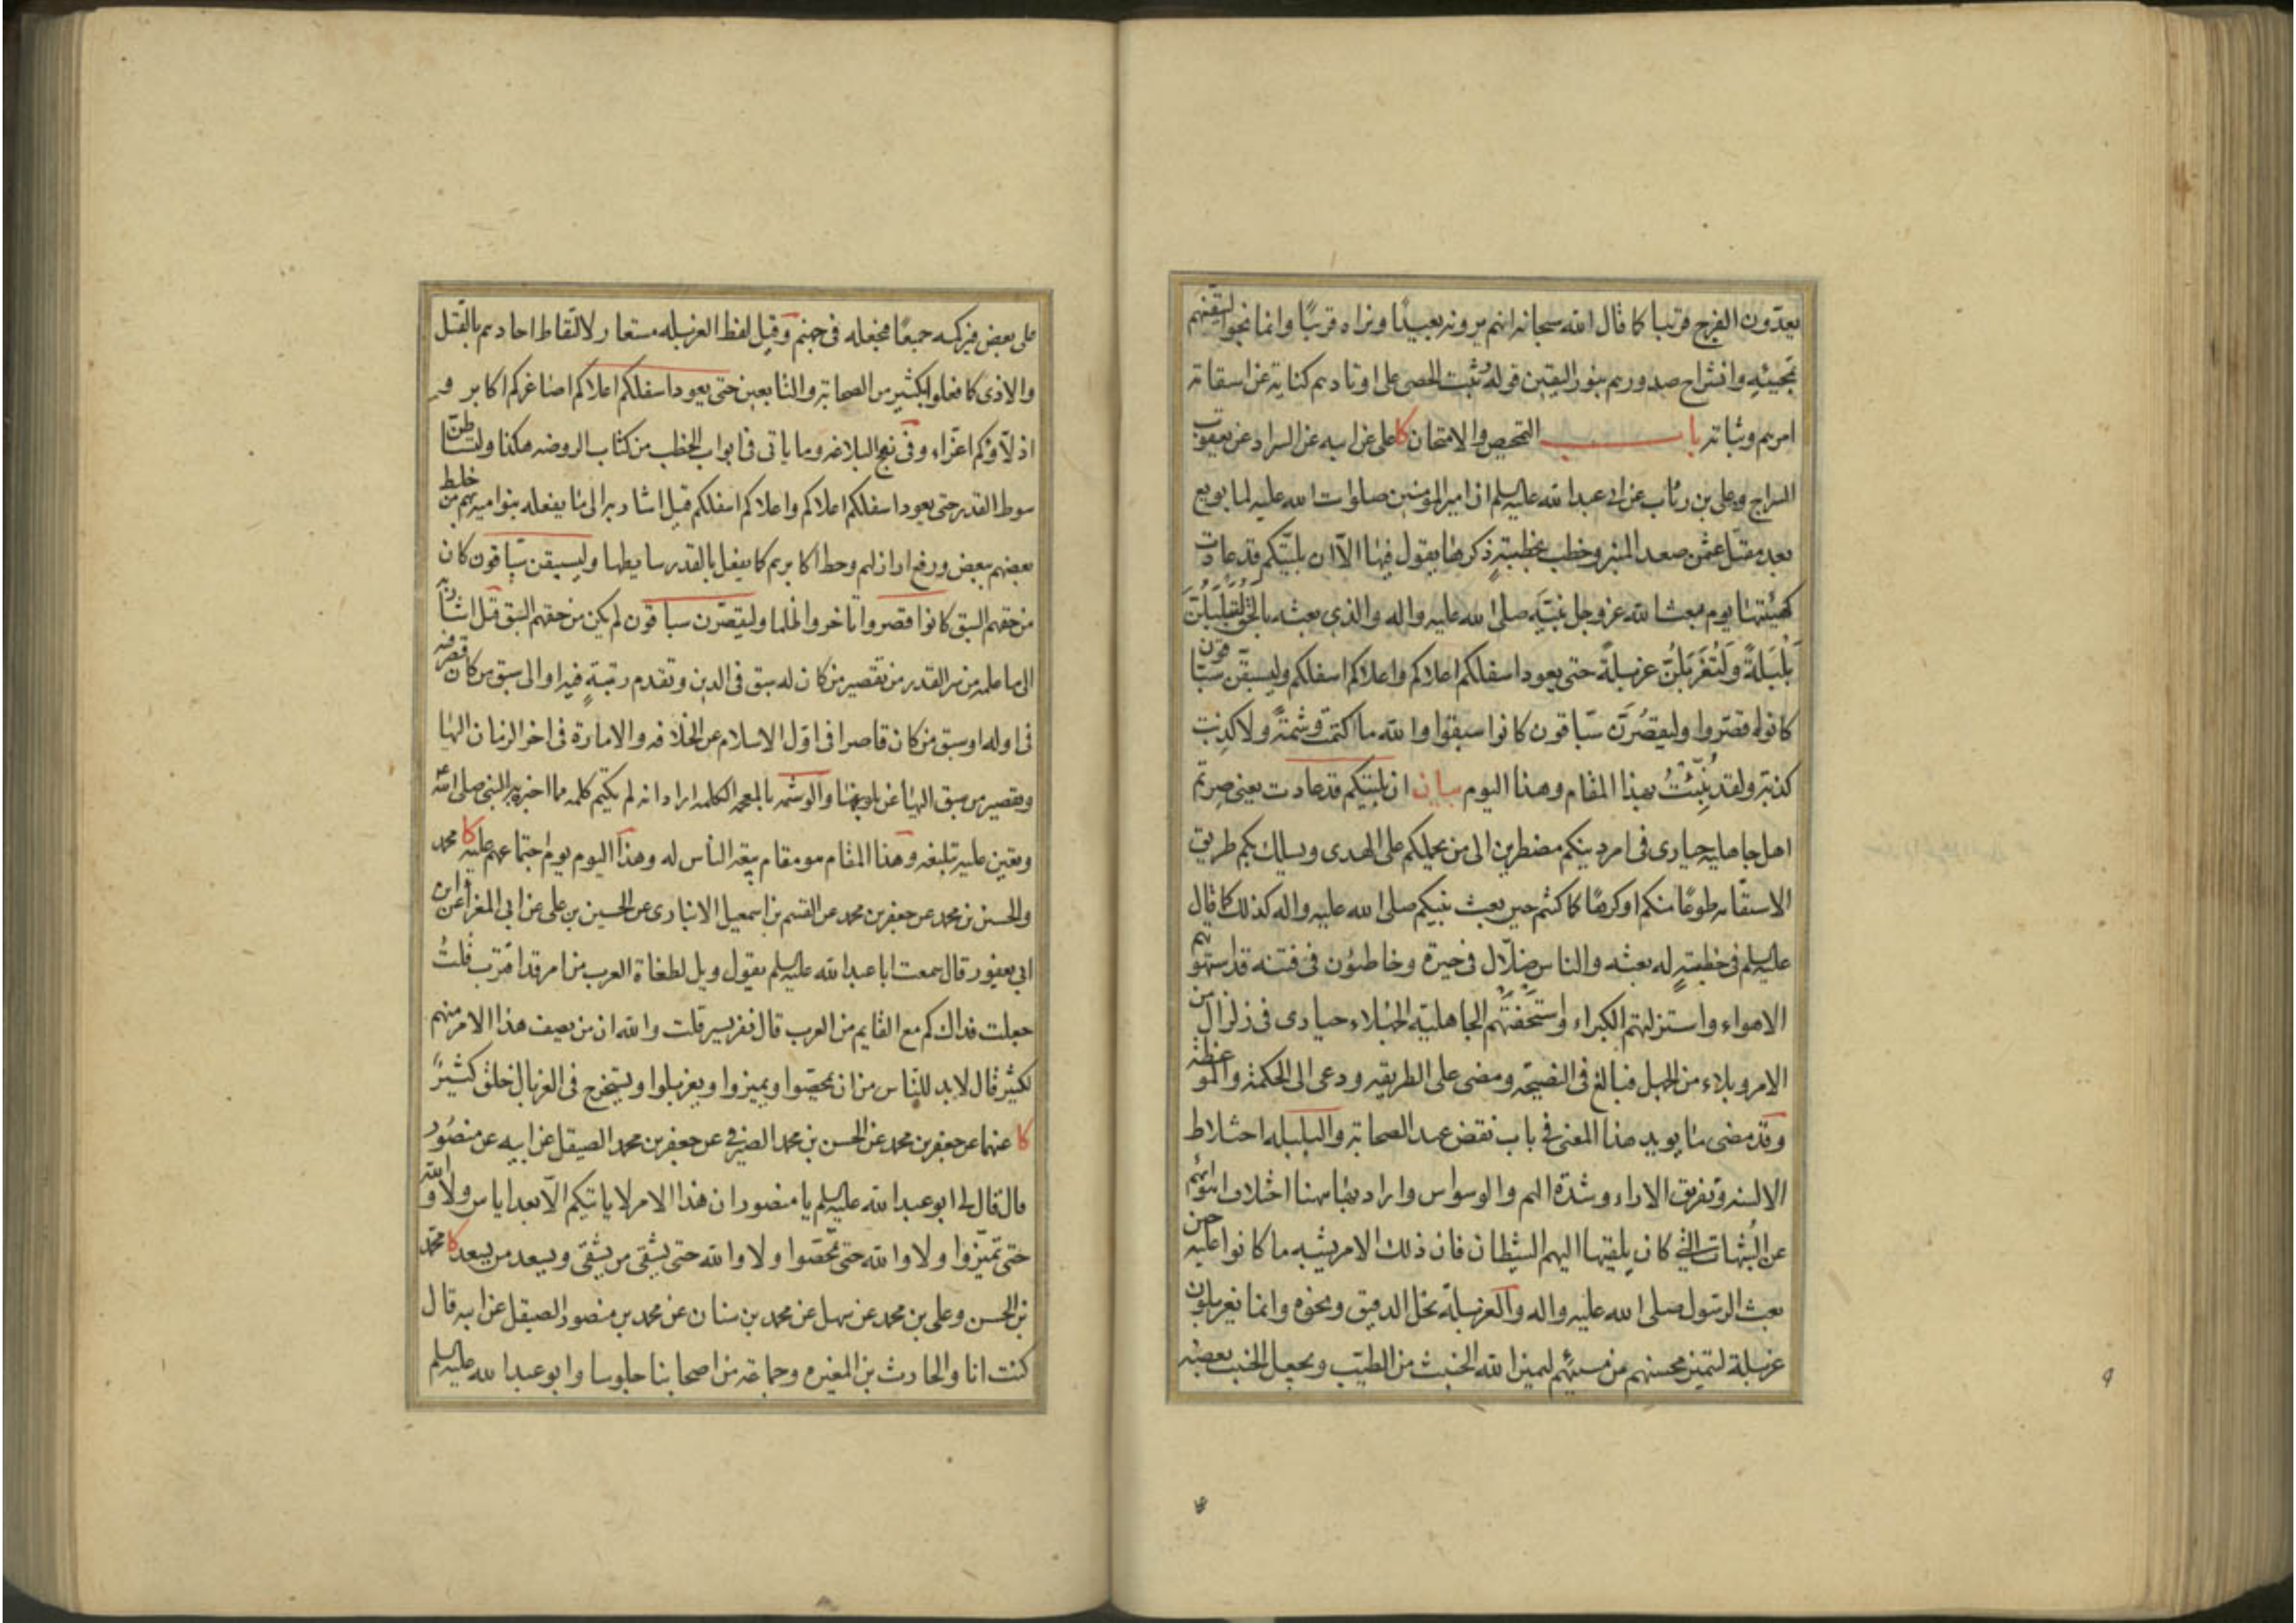 يعدّون الفرج قريبا كما قال الله سبحانه انهم يرونه بعيدًا ونراه قريبًا وانما نجوا ليقينهم
بمجيئه وانشراح صدورهم بنور اليقين قوله ثبت الحصى على اوتادهم كناية عن استقامة
امرهم وثباته باب التمحيص والامتحان كا على عن ابيه عن السراد عن يعقوب
السراج وعلى بن رئاب عن ابى عبد الله عليه السلم ان امير المؤمنين صلوات الله عليه لما بويع
بعد مقتل عثمن صعد المنبر وخطب بخطبة ذكرها يقول فيها الا ان بليّتكم قد عادت
كهيئتها يوم بعث الله عز وجل نبيّه صلى الله عليه واله والذى بعثه بالحق لَتُبَلبَلُنّ
بَلْبَلَةً وَلَتُغَرْبَلُنّ غربلةً حتى يعود اسفلكم اعلاكم واعلاكم اسفلكم وليسبقنّ سبّاقون
كانوا قصّروا وليقصُرَنّ سبّاقون كانوا سبقوا والله ما كتمت وشمةً ولا كذبت
كذبة ولقد نُبِّئتُ بهذا المقام وهذا اليوم بيان ان بليّتكم قد عادت يعنى صرتم
اهل جاهلية حيارى فى امر دينكم مضطرين الى من يحملكم على الهدى ويسلك بكم طريق
الاستقامة طوعًا منكم او كرهًا كما كنتم حين بعث نبيكم صلى الله عليه واله كذلك كما قال
عليه السلم فى خطبةٍ له بعثه والناس ضلّال فى حيرة وخاطبون فى فتنه قد استهوتهم
الاهواء واستزلتهم الكبراء واستخفتهم الجاهلية الجهلاء حيارى فى زلزال من
الامر وبلاء من الجهل فبالغ فى النصيحة ومضى على الطريقه ودعى الى الحكمة والموعظة
وقد مضى ما يويد هذا المعنى فى باب نقض عهد الصحابة والبلبله اختلاط
الالسنه وتفريق الاراء وشدّة الهم والوسواس واراد بها هنا اختلاف اهوائهم
عن الشبهات التى كان يلقيها اليهم الشيطان فان ذلك الامر يشبه ما كانوا عليه حين
بعث الرسول صلى الله عليه واله والغربلة نخل الدقيق ونحوه وانما يغربلون
غربلة لتميز محسنهم من مسيئهم ليميز الله الخبيث من الطيّب ويجعل الخبيث بعضه
على بعض فيركمه جميعًا فيجعله فى جهنم وقيل لفظ الغربله مستعار لالتقاط احادهم بالقتل
والاذى كما فعلوا بكثير من الصحابة والتابعين حتى يعود اسفلكم اعلاكم اصاغركم اكابر
اذلّاؤكم اعزّاء وفى نهج البلاغه وما ياتى فى ابواب الخطب من كتاب الروضه هكذا ولتساطن
سوط القدر حتى يعود اسفلكم اعلاكم واعلاكم اسفلكم قيل اشار به الى ما يفعله بنو اميه بهم من خلط
بعضهم ببعض ورفع اراذلهم وحط اكابرهم كما يفعل بالقدر سايطها وليسبقن سبّاقون كان
من حقهم السبق كانوا قصروا تاخروا ظلما وليقصّرن سباقون لم يكن من حقهم السبق قيل اشارة
الى ما علمه من سر القدر من تقصير من كان له سبق فى الدين وتقدم رتبةٍ فيه او الى سبق من كان قصر فيه
فى اوله او سبق من كان قاصرا فى اوّل الاسلام عن الخلافه والامارة فى اخر الزمان اليها
وتقصير من سبق اليها عن بلوغها والوشمه بالمعجمه الكلمه اراد انه لم يكتم كلمه مما اخبره به النبى صلى الله
وتعين عليه تبليغه وهذا المقام هو مقام بيعة الناس له وهذا اليوم يوم اجتماعهم عليه كا محمد
والحسن بن محمد عن جعفر بن محمد عن القسم بن اسمعيل الانبارى عن الحسين بن على عن ابى المغرا عن ابن
ابى يعفور قال سمعت ابا عبد الله عليه السلم يقول ويل لطغاة العرب من امر قد اقترب قلتُ
جعلت فداك كم مع القايم من العرب قال نفر يسير قلت والله ان من يصف هذا الامر منهم
لكثير قال لا بد للنّاس من ان يمحّصوا ويميزوا ويغربلوا ويستخرج فى الغربال خلق كثيرٌ
كا عنهما عن جعفر بن محمد عن الحسن بن محمد الصيرفى عن جعفر بن محمد الصيقل عن ابيه عن منصور
قال قال لى ابو عبد الله عليه السلم يا منصور ان هذا الامر لا ياتيكم الّا بعد اياس ولا والله
حتى تميّزوا ولا والله حتى تمحّصوا ولا والله حتى يشقى من يشقى ويسعد من يسعد كا محمّد
بن الحسن وعلى بن محمد عن سهل عن محمد بن سنان عن محمد بن منصور الصيقل عن ابيه قال
كنت انا والحارث بن المغيره وجماعة من اصحابنا جلوسا وابو عبد الله عليه السلم